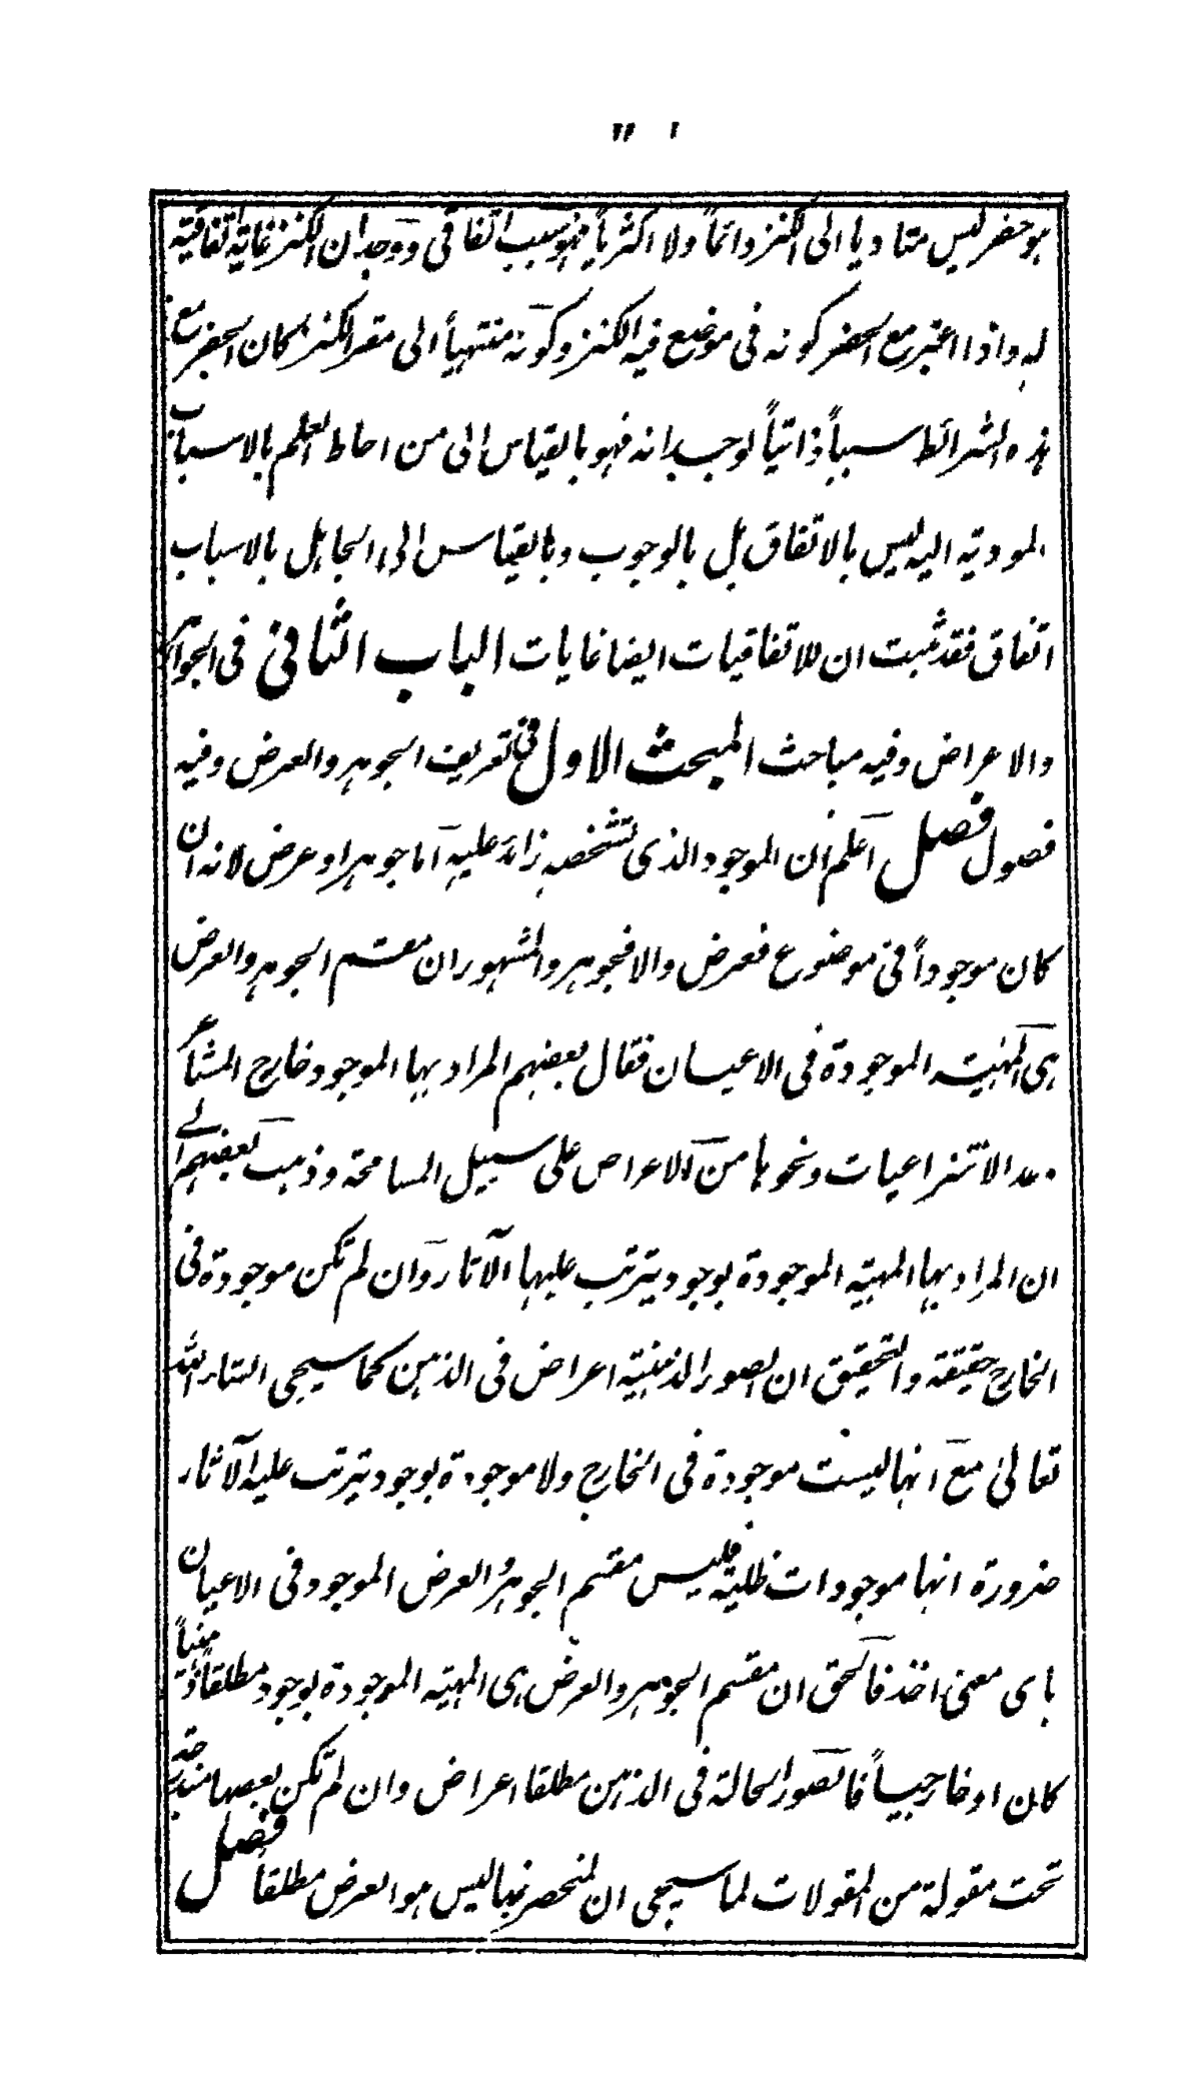 هو حفر ليس متاديا الى الكنز دائماً ولا اكثرياً فهو سبب اتفاقى ووجدان الكنز غاية اتفاقية
له واذا اعتبر مع الحفر كونه فى موضع فيه الكنز وكونه منتهياً الى مقر الكنز كان الحفر مع
هذه الشرائط سبباً ذاتياً لوجدانه فهو بالقياس الى من احاط العلم بالاسباب
المودية اليه ليس بالاتفاق بل بالوجوب وبالقياس الى الجاهل بالاسباب
اتفاق فقد ثبت ان للاتفاقيات ايضا غايات الباب الثانى فى الجواهر
والاعراض وفيه مباحث المبحث الاول فى تعريف الجوهر والعرض وفيه
فصول فصل اعلم ان الموجود الذى تشخصه زائد عليه اما جوهر او عرض لانه ان
كان موجوداً فى موضوع فعرض والا فجوهر والمشهور ان مقسم الجوهر والعرض
هى المهية الموجودة فى الاعيان فقال بعضهم المراد بها الموجود خارج المشاعر
وعد الانتزاعيات ونحوها من الاعراض على سبيل المسامحة وذهب بعضهم الى
ان المراد بها المهية الموجودة بوجود يترتب عليها الآثار وان لم تكن موجودة فى
الخارج حقيقة والتحقيق ان الصور الذهنية اعراض فى الذهن كما سيجى انشاء الله
تعالى مع انها ليست موجودة فى الخارج ولا موجودة بوجود يترتب عليه الآثار
ضرورة انها موجودات ظلية فليس مقسم الجوهر والعرض الموجود فى الاعيان
باى معنى اخذ فالحق ان مقسم الجوهر والعرض هى المهية الموجودة بوجود مطلقاً ذهنياً
كان او خارجياً فالصور الحالة فى الذهن مطلقا اعراض وان لم تكن بعضها مندرجة
تحت مقولة من المقولات لما سيجى ان المنحصر فيها ليس هو العرض مطلقاً فصل